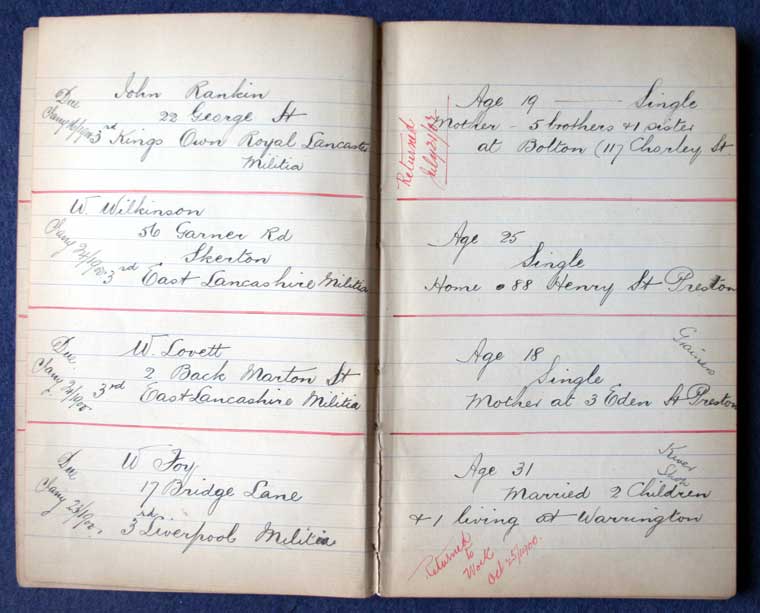 Due
John Rankin
22 George St
3rd Kings Own Royal Lancaster
Militia
W. Wilkinson
56 Garner Rd
Skerton
3rd East Lancashire Militia
Due
W Lovett
2 Back Marton St
3rd
East Lancashire Militia
Due
W Foy
17 Bridge Lane
3rd Liverpool Militia
Returned
Age 19 Single
Mother - 5 brothers & 1 sister
at Bolton (117 Chorley St.
Age 25
Single
Home 88 Henry St Preston
Age 18
Single
Mother at 3 Eden St Preston
Age 31
Married 2 Children
& 1 living at Warrington
Returned
to
Work
Oct 25/1900.